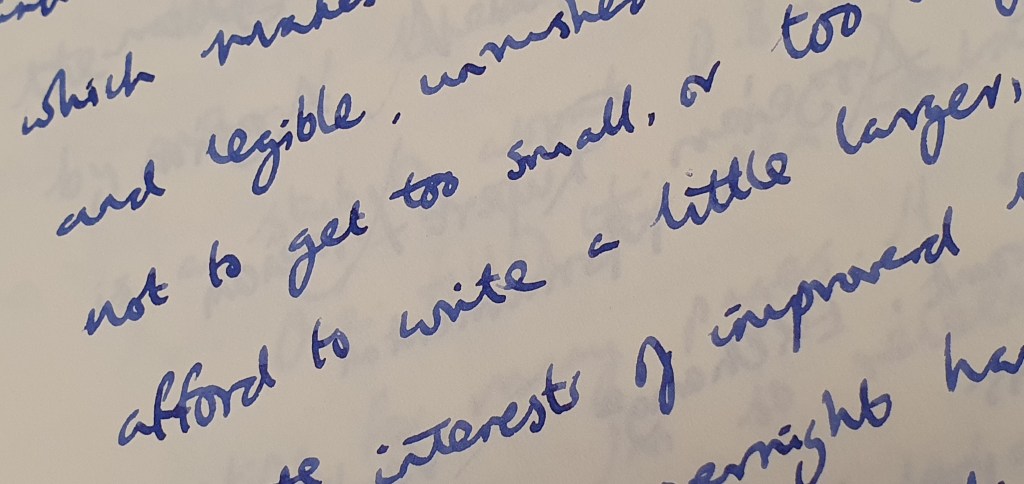 which makes
and legible, unrushed
not to get too small, or too
afford to write a little larger,
interests of improverd